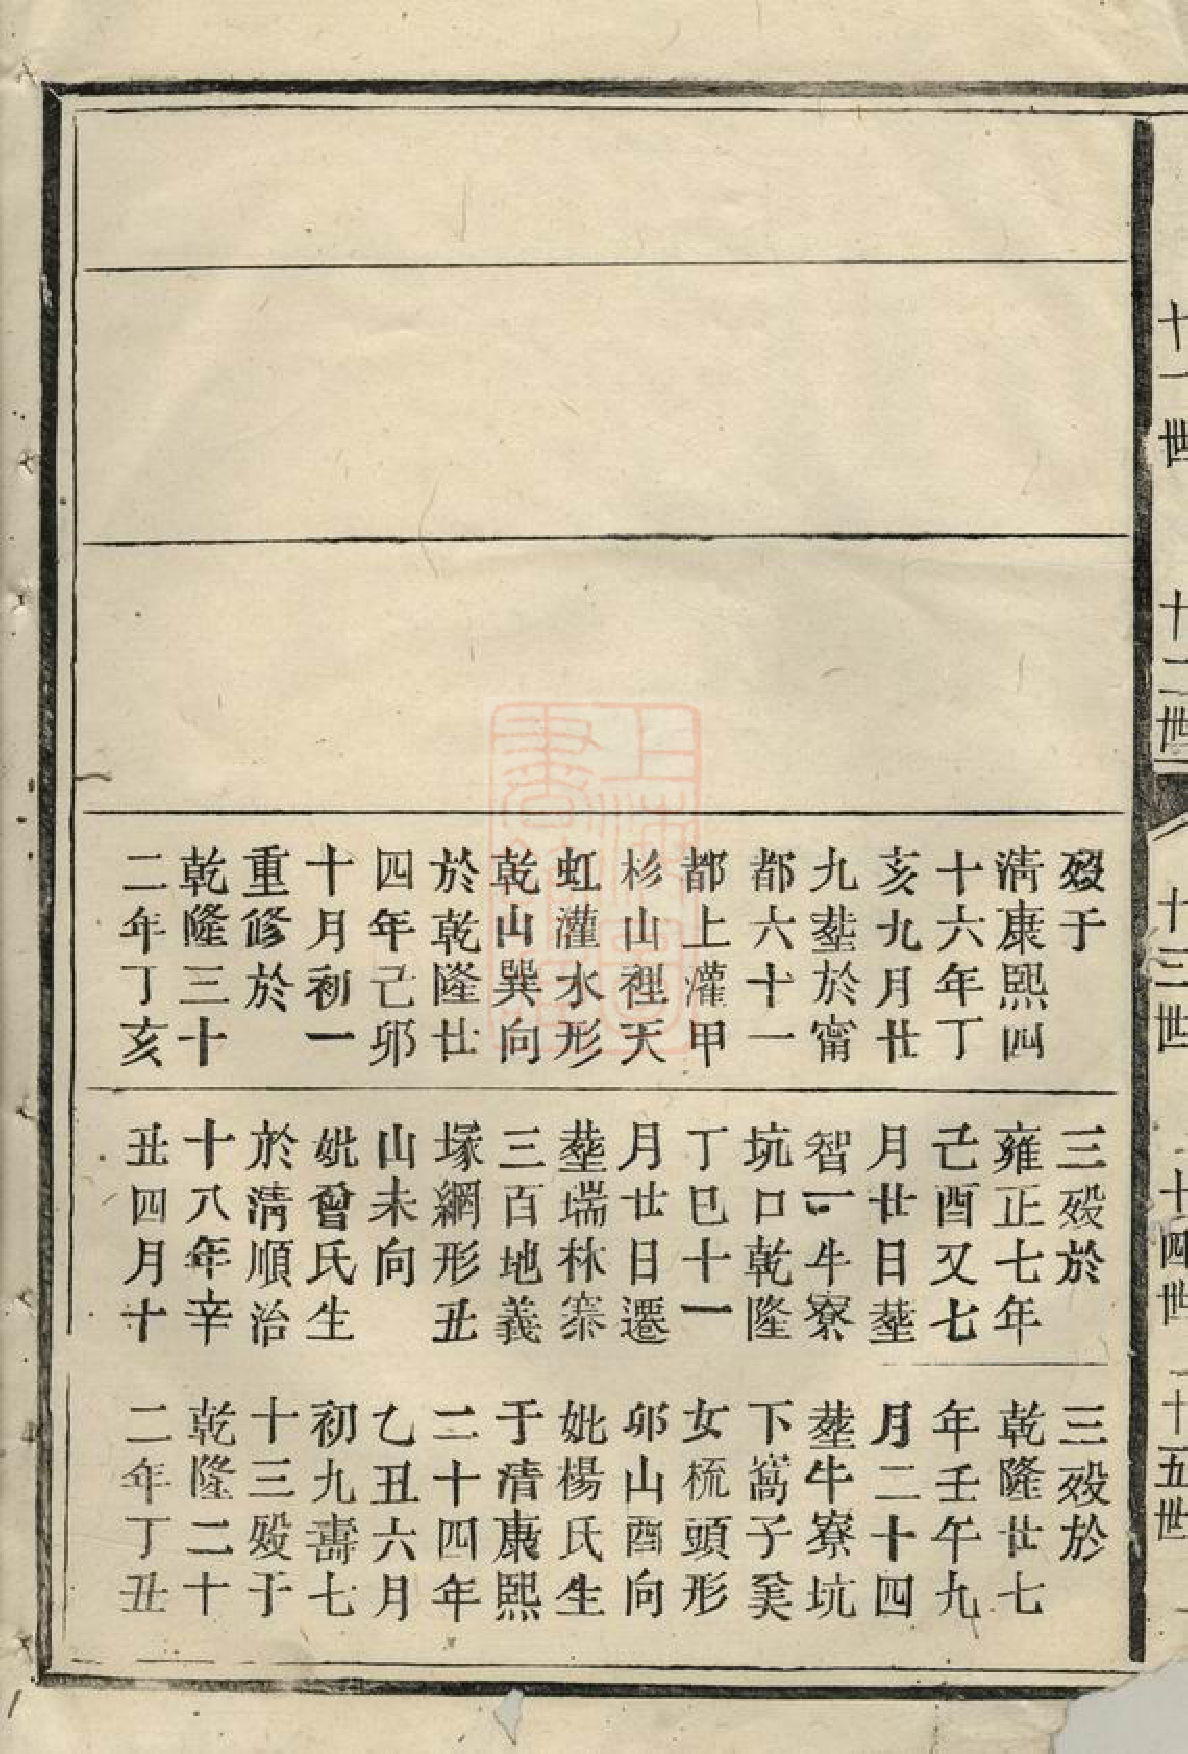 十一世
十二世
十三世
十四世
十五世
歿于
淸康熙四
十六年丁
亥九月廿
九塟於甯
都六十一
都上灌甲
杉山裡天
虹灌水形
乾山巽向
於乾隆廿
四年己卯
十月初一
重修於
乾隆三十
二年丁亥
三歿於
雍正七年
己酉又七
月廿日塟
智一牛寮
坑口乾隆
丁巳十一
月廿日遷
塟瑞林寨
三百地義
塚網形丑
山未向
妣曾氏生
於淸順治
十八年辛
丑四月十
三歿於
乾隆廿七
年壬午九
月二十四
塟牛寮坑
下窩子
女梳頭形
卯山酉向
妣楊氏生
于清康熙
二十四年
乙丑六月
初九壽七
十三歿于
乾隆二十
二年丁丑